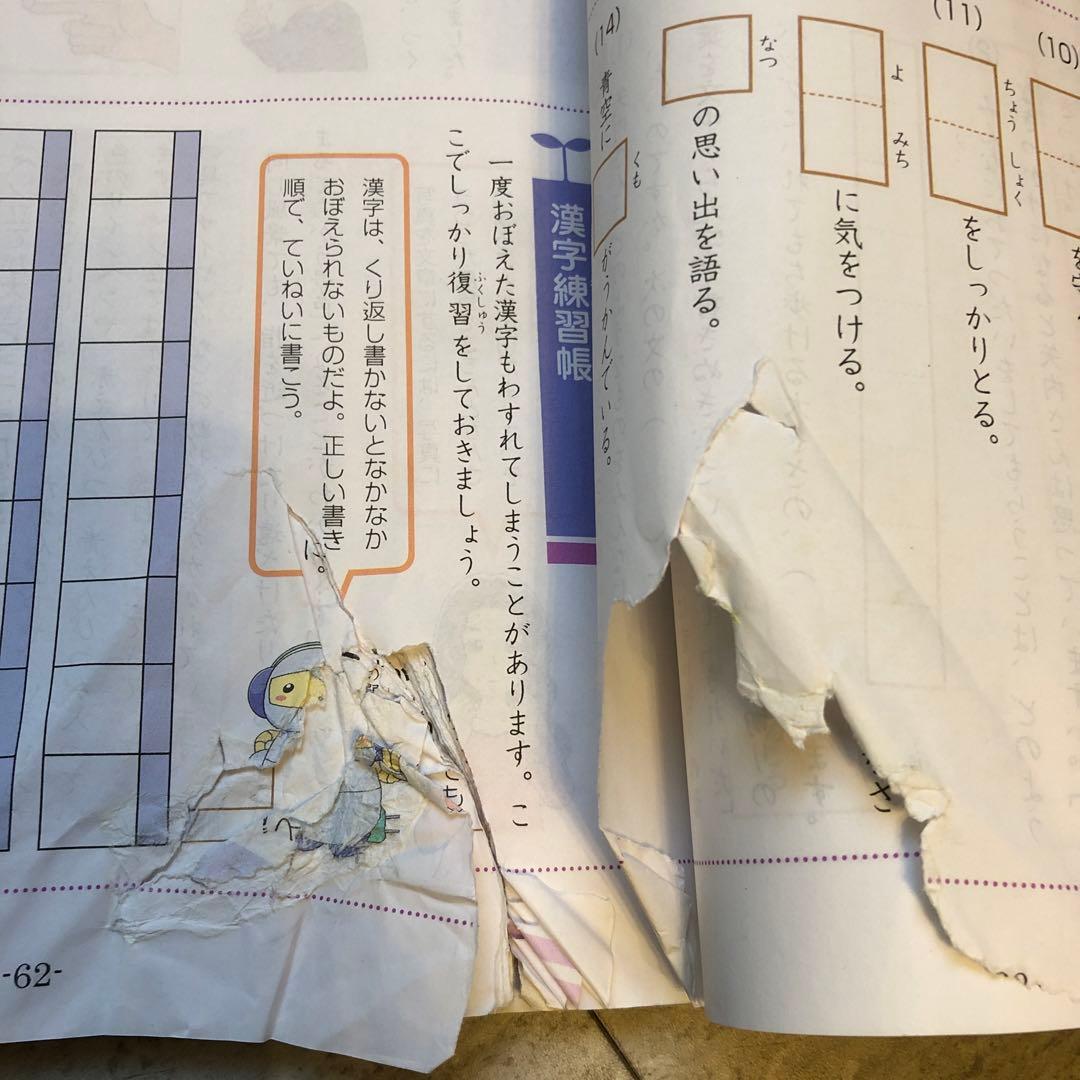 (10)
(11)
ちょうしょく
をしっかりとる。
よみち
に気をつける。
なつ
の思い出を語る。
(14)
青空に
くも
がうかんでいる。
漢字練習帳
一度おぼえた漢字もわすれてしまうことがあります。こ
こでしっかり復習をしておきましょう。
ふくしゅう
漢字は、くり返し書かないとなかなか
おぼえられないものだよ。正しい書き
順で、ていねいに書こう。
に。
-62-